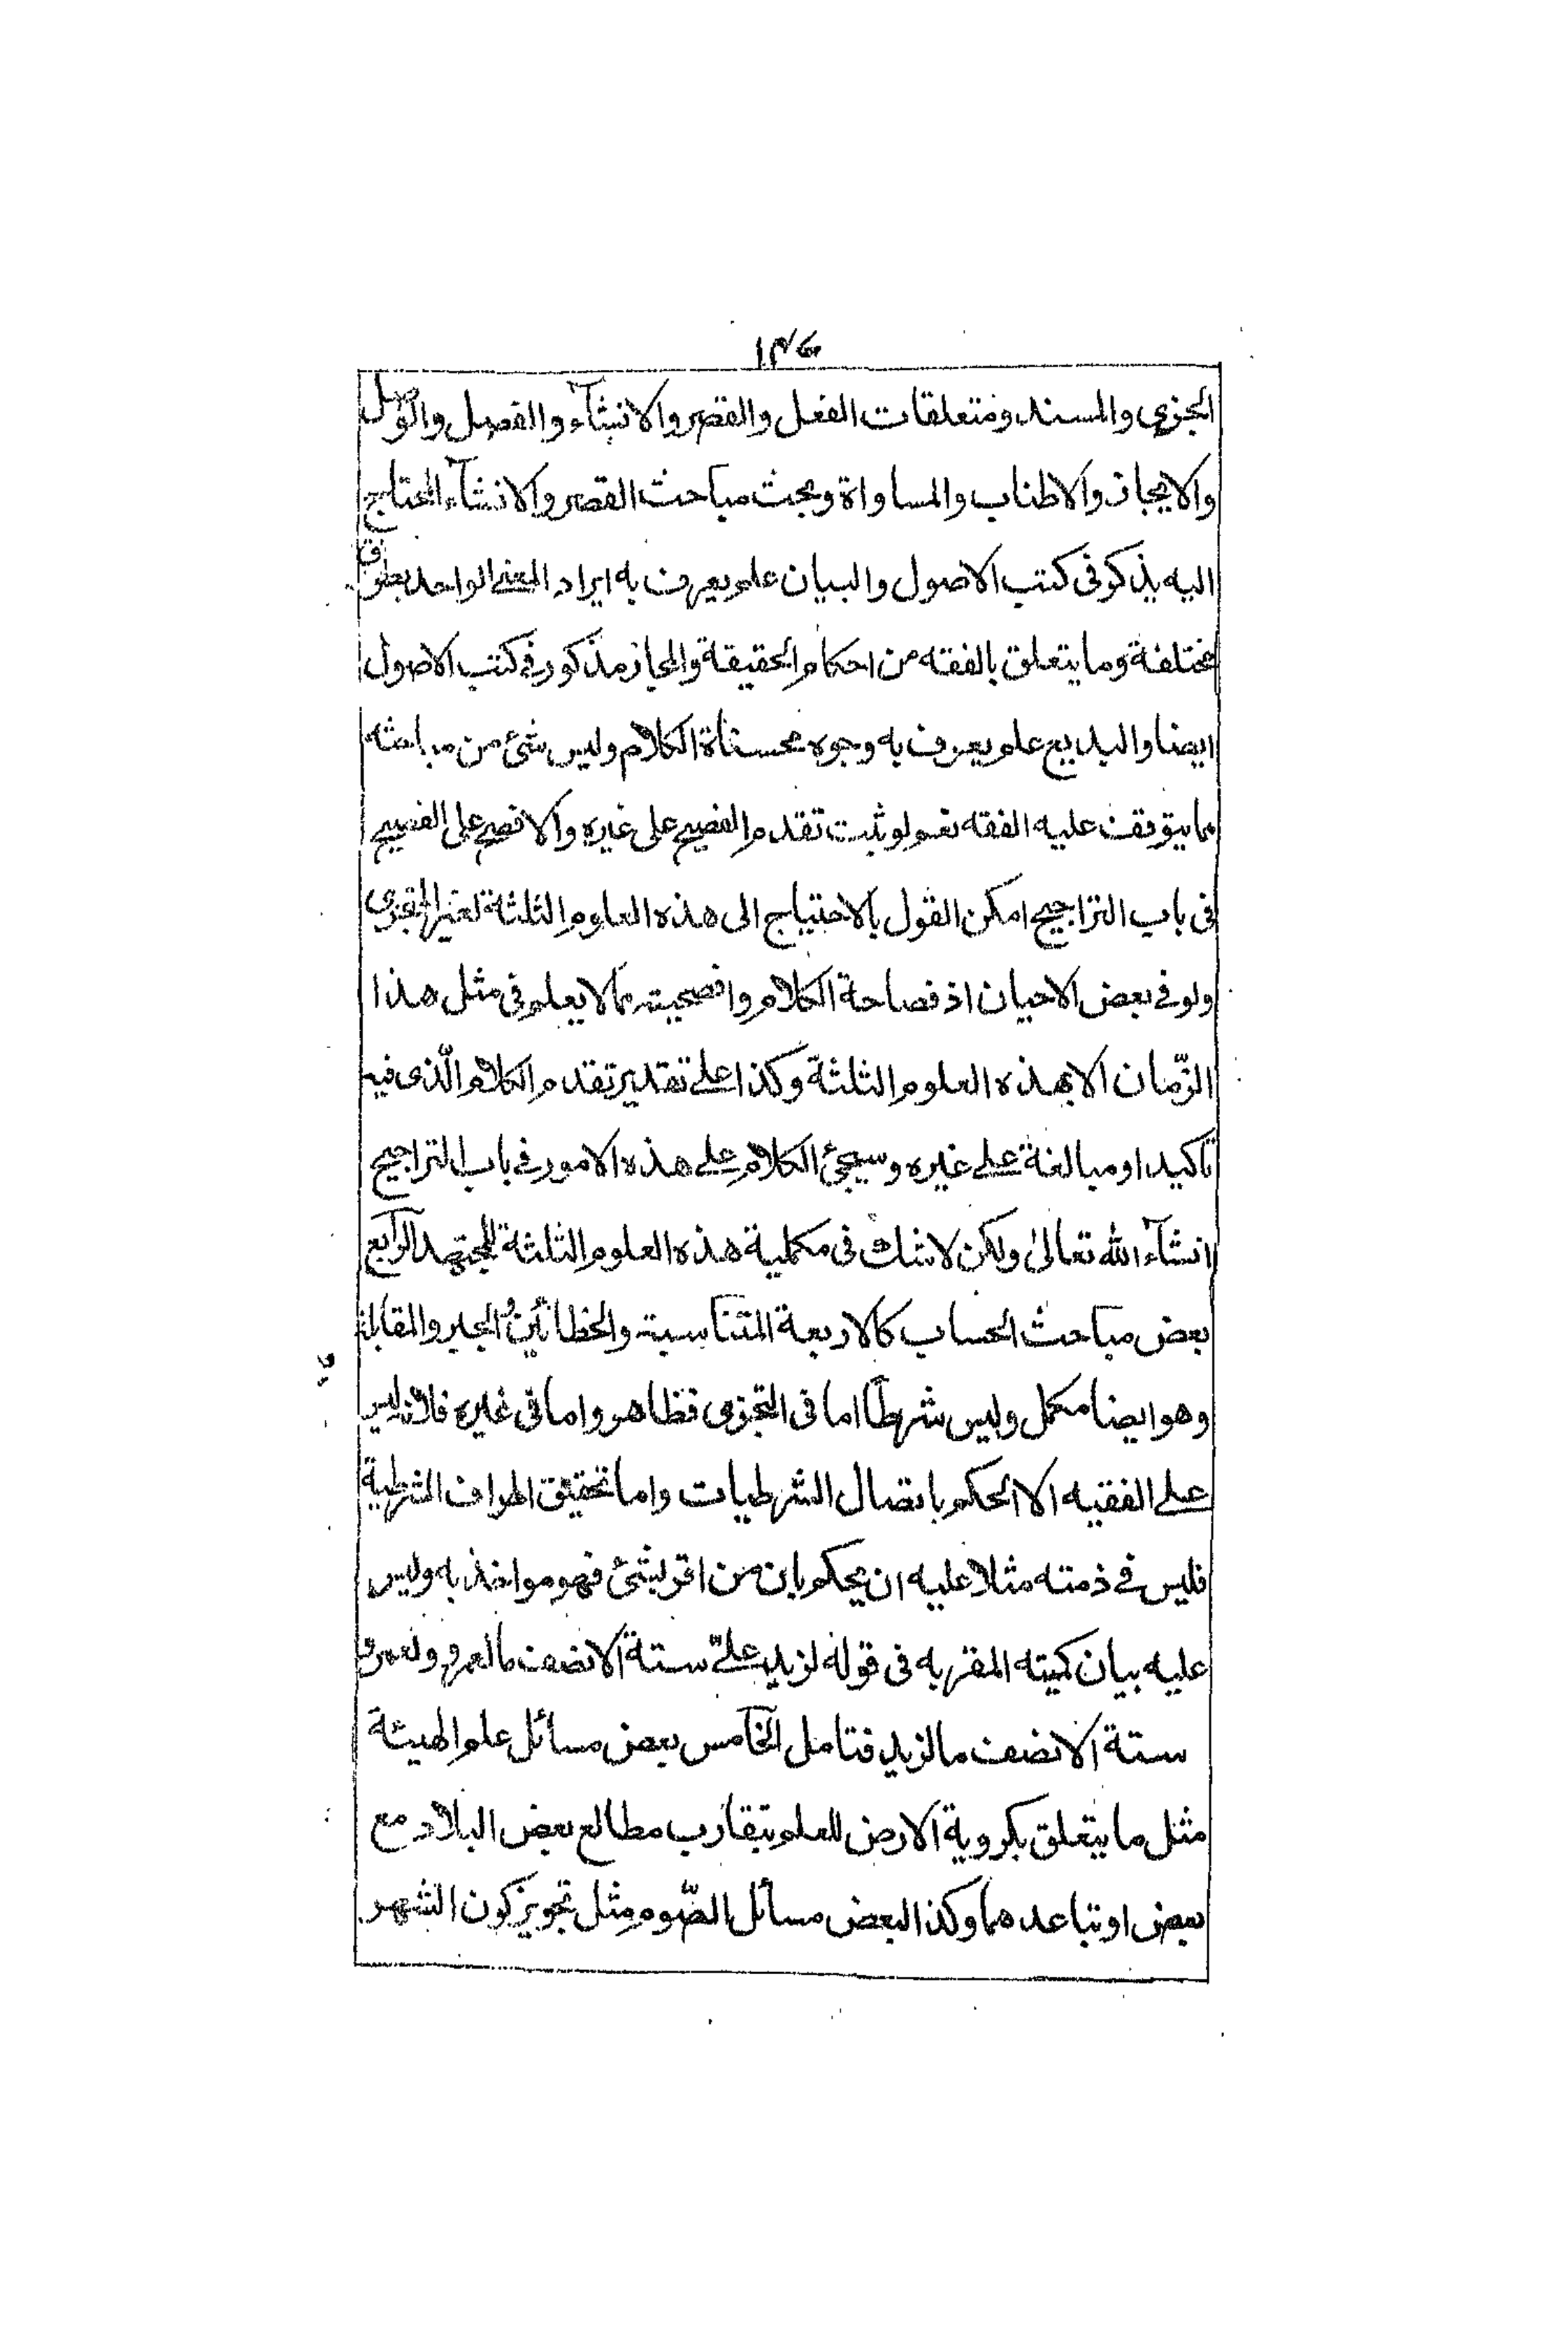 ١٣٦
الجزى والمسند ومتعلقات الفعل والقصر والانشآء والفصل والوصل
والايجاز والاطناب والمساواة وبحث مباحث القصر والانشآء المحتاج
اليه يذكر فى كتب الاصول والبيان علم يعرف به ايراد المعنى الواحد بطرق
مختلفة وما يتعلق بالفقه من احكام الحقيقة والمجاز مذكور فى كتب الاصول
ايضا والبديع علم يعرف به وجوه محسناة الكلام وليس شئ من مباحثه
مما يتوقف عليه الفقه نعم لو ثبت تقدم الفصيح على غيره والافصح على الفصيح
فى باب التراجيح امكن القول بالاحتياج الى هذه العلوم الثلثة لغير المتجزى
ولو فى بعض الاحيان اذ فصاحة الكلام وافصحيته مما لا يعلم فى مثل هذا
الزّمان الا بهذه العلوم الثلثة وكذا على تقدير تقدم الكلام الّذى فيه
تاكيد او مبالغة على غيره وسيجئ الكلام على هذه الامور فى باب التراجيح
انشآء الله تعالى ولكن لا شك فى مكملية هذه العلوم الثلثة للمجتهد الرابع
بعض مباحث الحساب كالاربعة المتناسبة والخطائين والجبر والمقابلة
وهو ايضا مكمل وليس شرطاً اما فى التجزى فظاهر واما فى غيره فلانه ليس
على الفقيه الا الحكم باتصال الشرطيات واما تحقيق اطراف الشرطية
فليس فى ذمته مثلا عليه ان يحكم بان من اقر بشئ فهو مواخذ به وليس
عليه بيان كميته المقر به فى قوله لزيد علىّ ستة الا نصف ما لعمرو ولعمرو
ستة الا نصف ما لزيد فتامل الخامس بعض مسائل علم الهيئة
مثل ما يتعلق بكروية الارض للعلم بتقارب مطالع بعض البلاد مع
بعض او تباعدهما وكذا لبعض مسائل الصّوم مثل تجويز كون الشهر